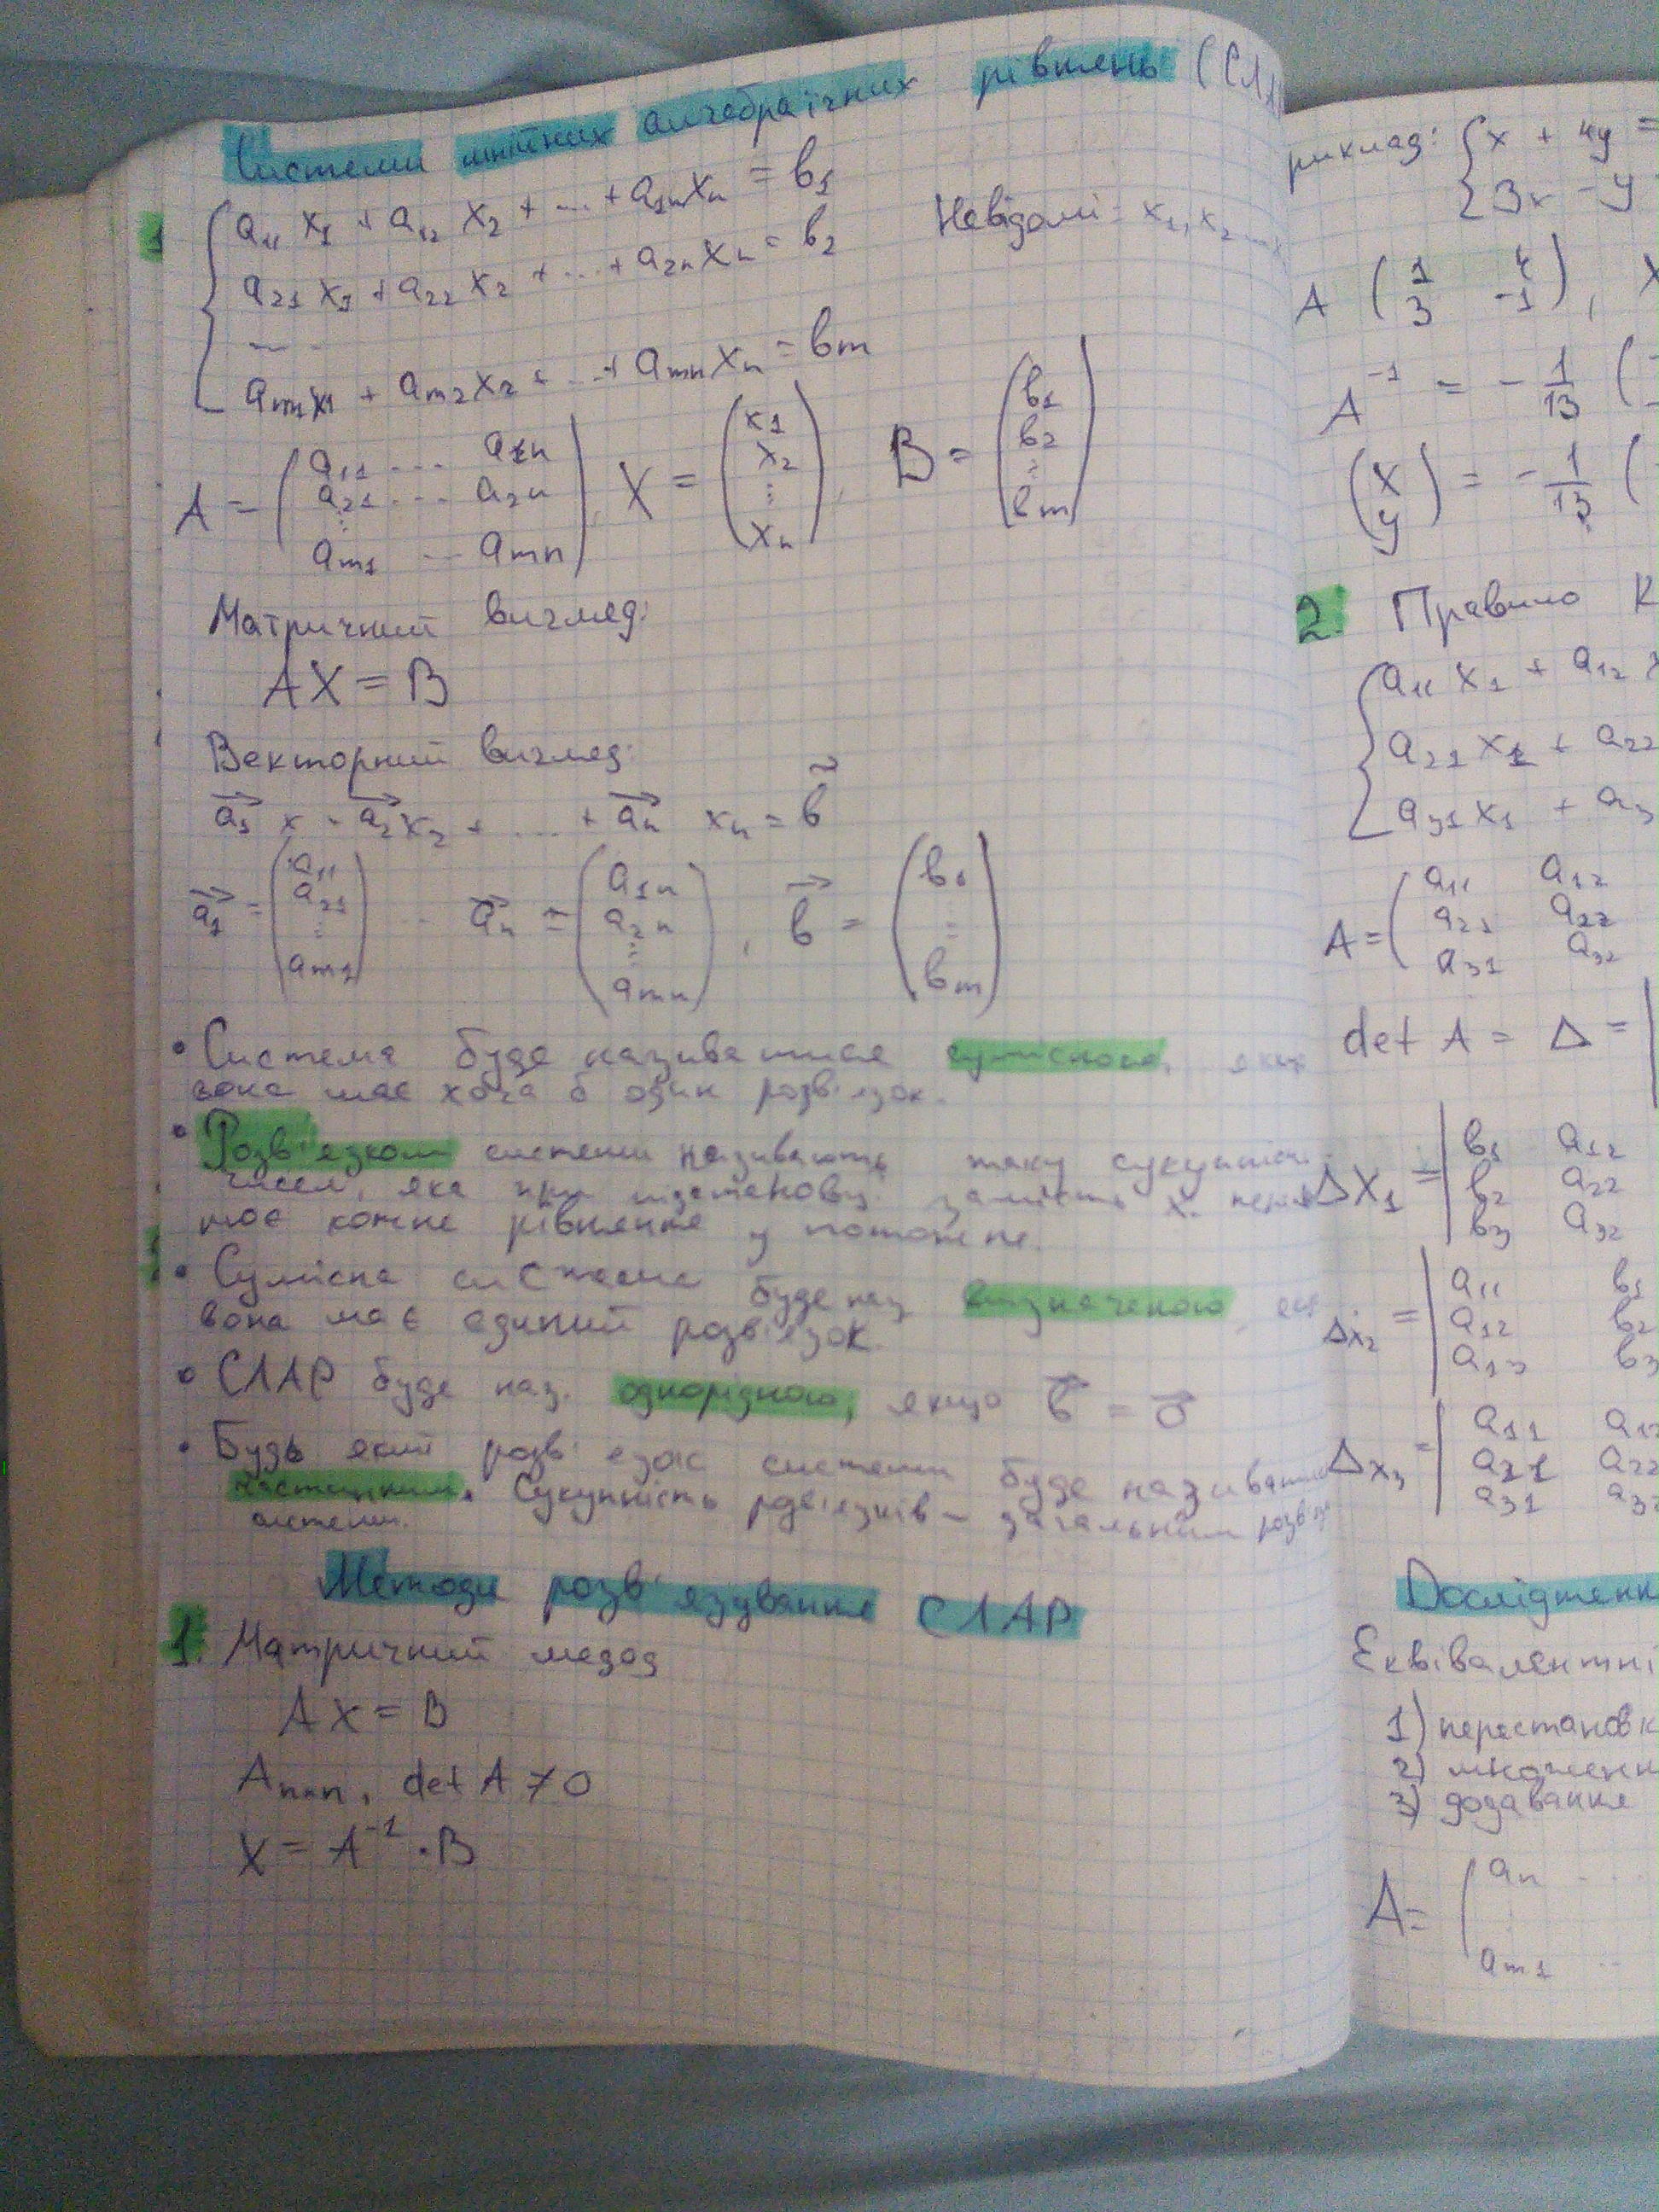 Системи лінійних алгебраїчних рівнень (СЛА
1 { a₁₁ x₁ + a₁₂ x₂ + ... + a₁ₙxₙ = b₁
Невідомі - x₁, x₂ ...
a₂₁ x₁ + a₂₂ x₂ + ... + a₂ₙxₙ = b₂
... .
aₘ₁x₁ + aₘ₂x₂ + ... + aₘₙxₙ = bₘ
A = ( a₁₁ ... a₁ₙ
a₂₁ ... a₂ₙ
⋮
aₘ₁ ... aₘₙ ), X = ( x₁
x₂
⋮
xₙ ), B = ( b₁
b₂
⋮
bₘ )
Матричний вигляд:
AX = B
Векторний вигляд:
a₁ x + a₂x₂ + ... + aₙ xₙ = b
a₁ = ( a₁₁
a₂₁
⋮
aₘ₁ ) ... aₙ = ( a₁ₙ
a₂ₙ
⋮
aₘₙ ), b = ( b₁
⋮
bₘ )
• Система буде називатися сумісною, якщо
вона має хоча б один розв'язок.
• Розв'язком системи називають таку сукупність
чисел, яка при підстановці замість x
кожне рівняння у тотожне.
• Сумісна система буде наз. визначеною,
вона має єдиний розв'язок.
• СЛАР буде наз. однорідною, якщо b = 0
• Будь який розв'язок системи буде називати
частинним. Сукупність розв'язків - загальним
системи.
Методи розв'язування СЛАР
1. Матричний медод
AX = B
Aₙₓₙ, det A ≠ 0
X = A⁻¹ · B
риклад: { x + 4y =
3x - y
A ( 1 4
3 -1 ), X
A⁻¹ = - 1/13 (
( x
y ) = - 1/13 (
2. Правило К
{ a₁₁ x₁ + a₁₂ x
a₂₁ x₁ + a₂₂
a₃₁ x₁ + a₃
A = ( a₁₁ a₁₂
a₂₁ a₂₂
a₃₁ a₃₂
det A = Δ = |
Δx₁ = | b₁ a₁₂
b₂ a₂₂
b₃ a₃₂
Δx₂ = | a₁₁ b₁
a₁₂ b₂
a₁₃ b₃
Δx₃ = | a₁₁ a₁₂
a₂₁ a₂₂
a₃₁ a₃₂
Дослідженн
Еквівалентні
1) перестановк
2) множенн
3) додавання
A = ( a₁₁ ...
aₘ₁ ..